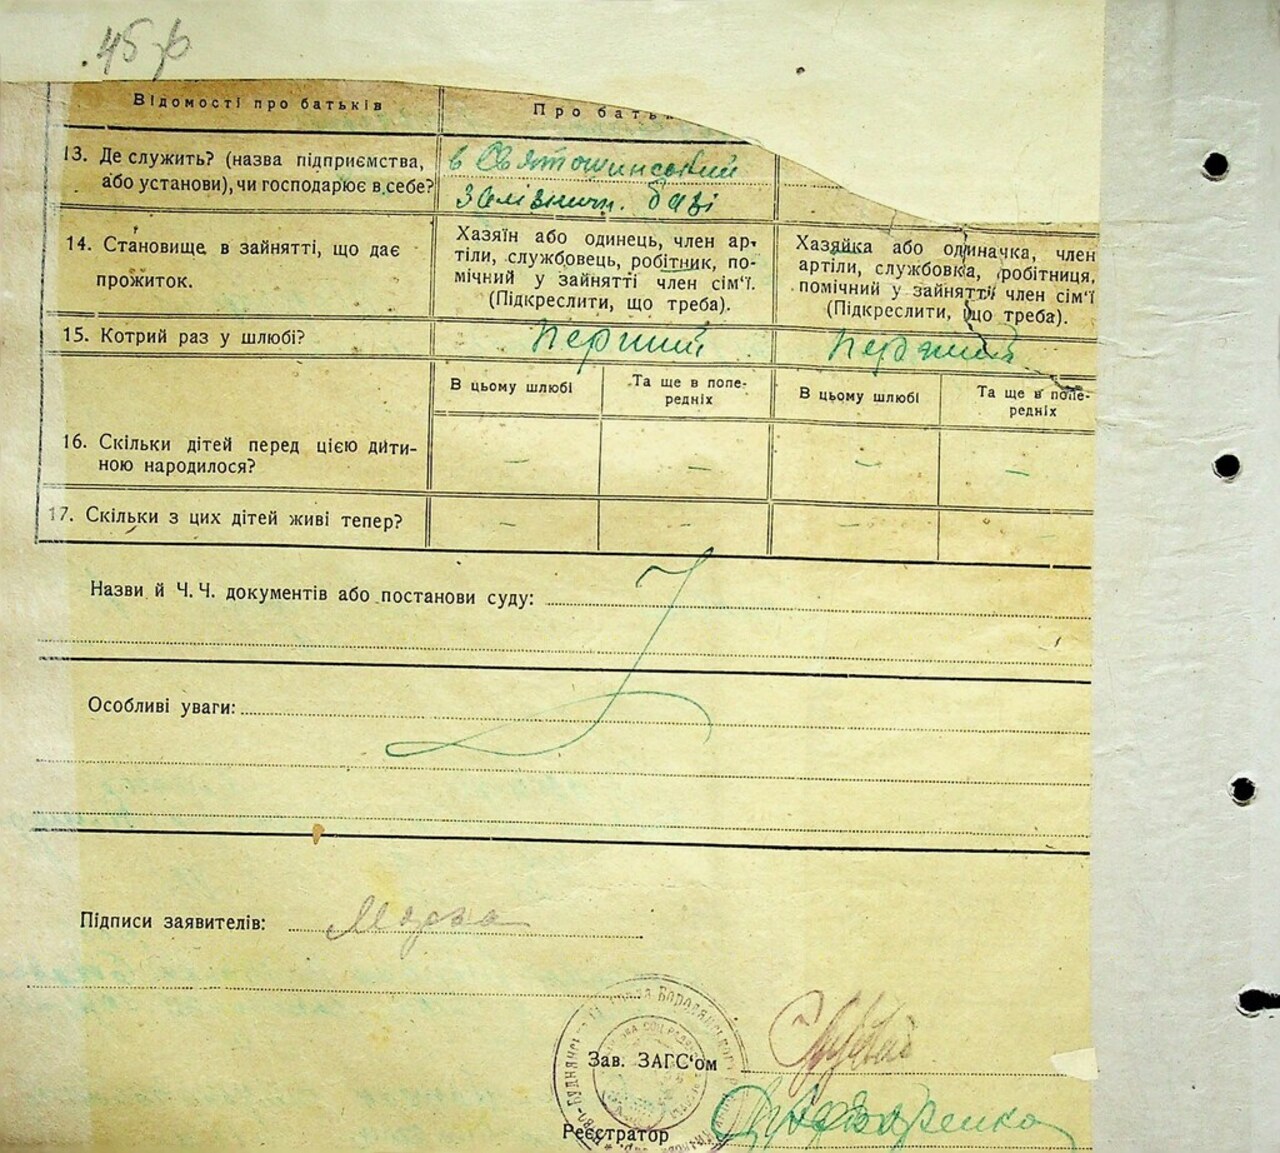 45
Відомості про батьків
Про батьк
13. Де служить? (назва підприємства,
або установи), чи господарює в себе?
в Святошинський
залізничн. базі
14. Становище в зайнятті, що дає
прожиток.
Хазяїн або одинець, член ар-
тіли, службовець, робітник, по-
мічний у зайнятті член сім'ї.
(Підкреслити, що треба).
Хазяйка або одиначка, член
артіли, службовка, робітниця,
помічний у зайнятті член сім'ї
(Підкреслити, що треба).
15. Котрий раз у шлюбі?
перший
перший
В цьому шлюбі
Та ще в попе-
редніх
В цьому шлюбі
Та ще в попе-
редніх
16. Скільки дітей перед цією дити-
ною народилося?
– – – –
17. Скільки з цих дітей живі тепер?
– – – –
Назви й Ч. Ч. документів або постанови суду:
Особливі уваги:
Підписи заявителів:
Зав. ЗАГС'ом
Реєстратор